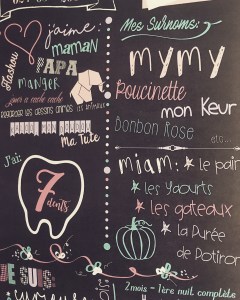 j'aime
maman
PAPA
manger
jouer à cache cache
regarder les dessins animés
Ma Tute
J'ai:
7
dents
JE SUIS
Mes Surnoms:
mymy
Poucinette
mon Keur
Bonbon Rose
etc...
miam: le pain
les yaourts
les gateaux
la Purée
de Potiron
2 mois = 1ère nuit complète